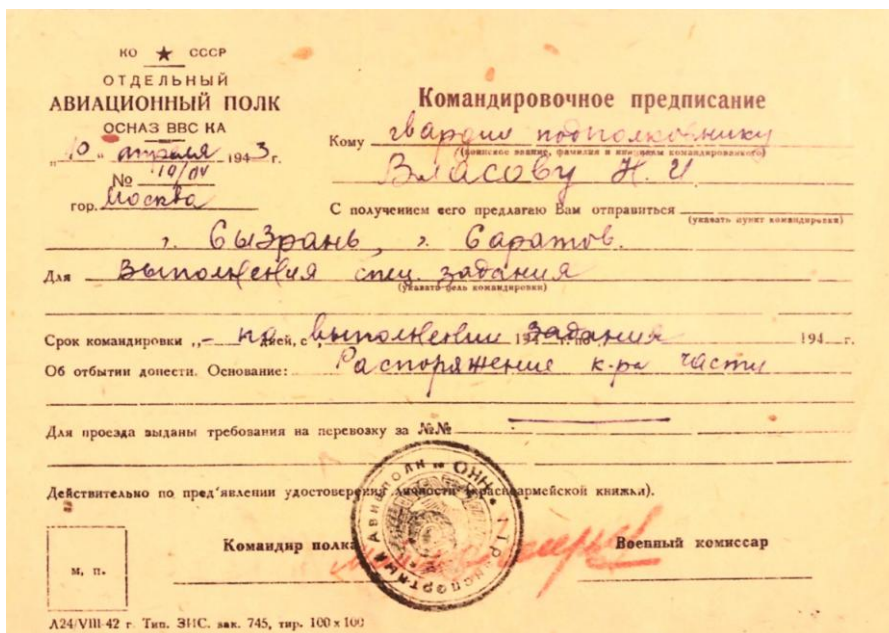 КО ★ СССР
ОТДЕЛЬНЫЙ
АВИАЦИОННЫЙ ПОЛК
ОСНАЗ ВВС КА
„10" апреля 1943 г.
№ 10/IV
гор. Москва
Командировочное предписание
Кому гвардии подполковнику
(воинское звание, фамилия и инициалы командированного)
Власову Н. И
С получением сего предлагаю Вам отправиться
(указать пункт командировки)
г. Сызрань, г. Саратов.
Для Выполнения спец. задания
(указать цель командировки)
Срок командировки „— на дней, с „ выполнении 194 задания 194 г.
Об отбытии донести. Основание: Распоряжение к-ра части
Для проезда выданы требования на перевозку за №№
Действительно по пред'явлении удостоверения личности (красноармейской книжки).
Командир полка
Военный комиссар
м. п.
ТРАНСПОРТНЫЙ АВИАПОЛК ОНН
Л24/VIII-42 г. Тип. ЗИС. зак. 745, тир. 100 x 100